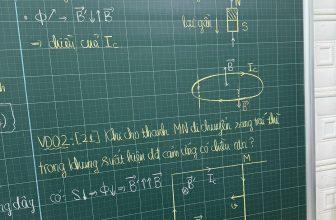 • Φ↗ → B⃗' ↓↑ B⃗
→ chiều của I_c
lại gần
N
S
B⃗' I_c
B⃗
VD02: [21] Khi cho thanh MN di chuyển sang trái thì
trong khung xuất hiện dđ cảm ứng có chiều ntn?
có: S↓ → Φ↓ → B⃗' ↑↑ B⃗
M
B⃗' I_c